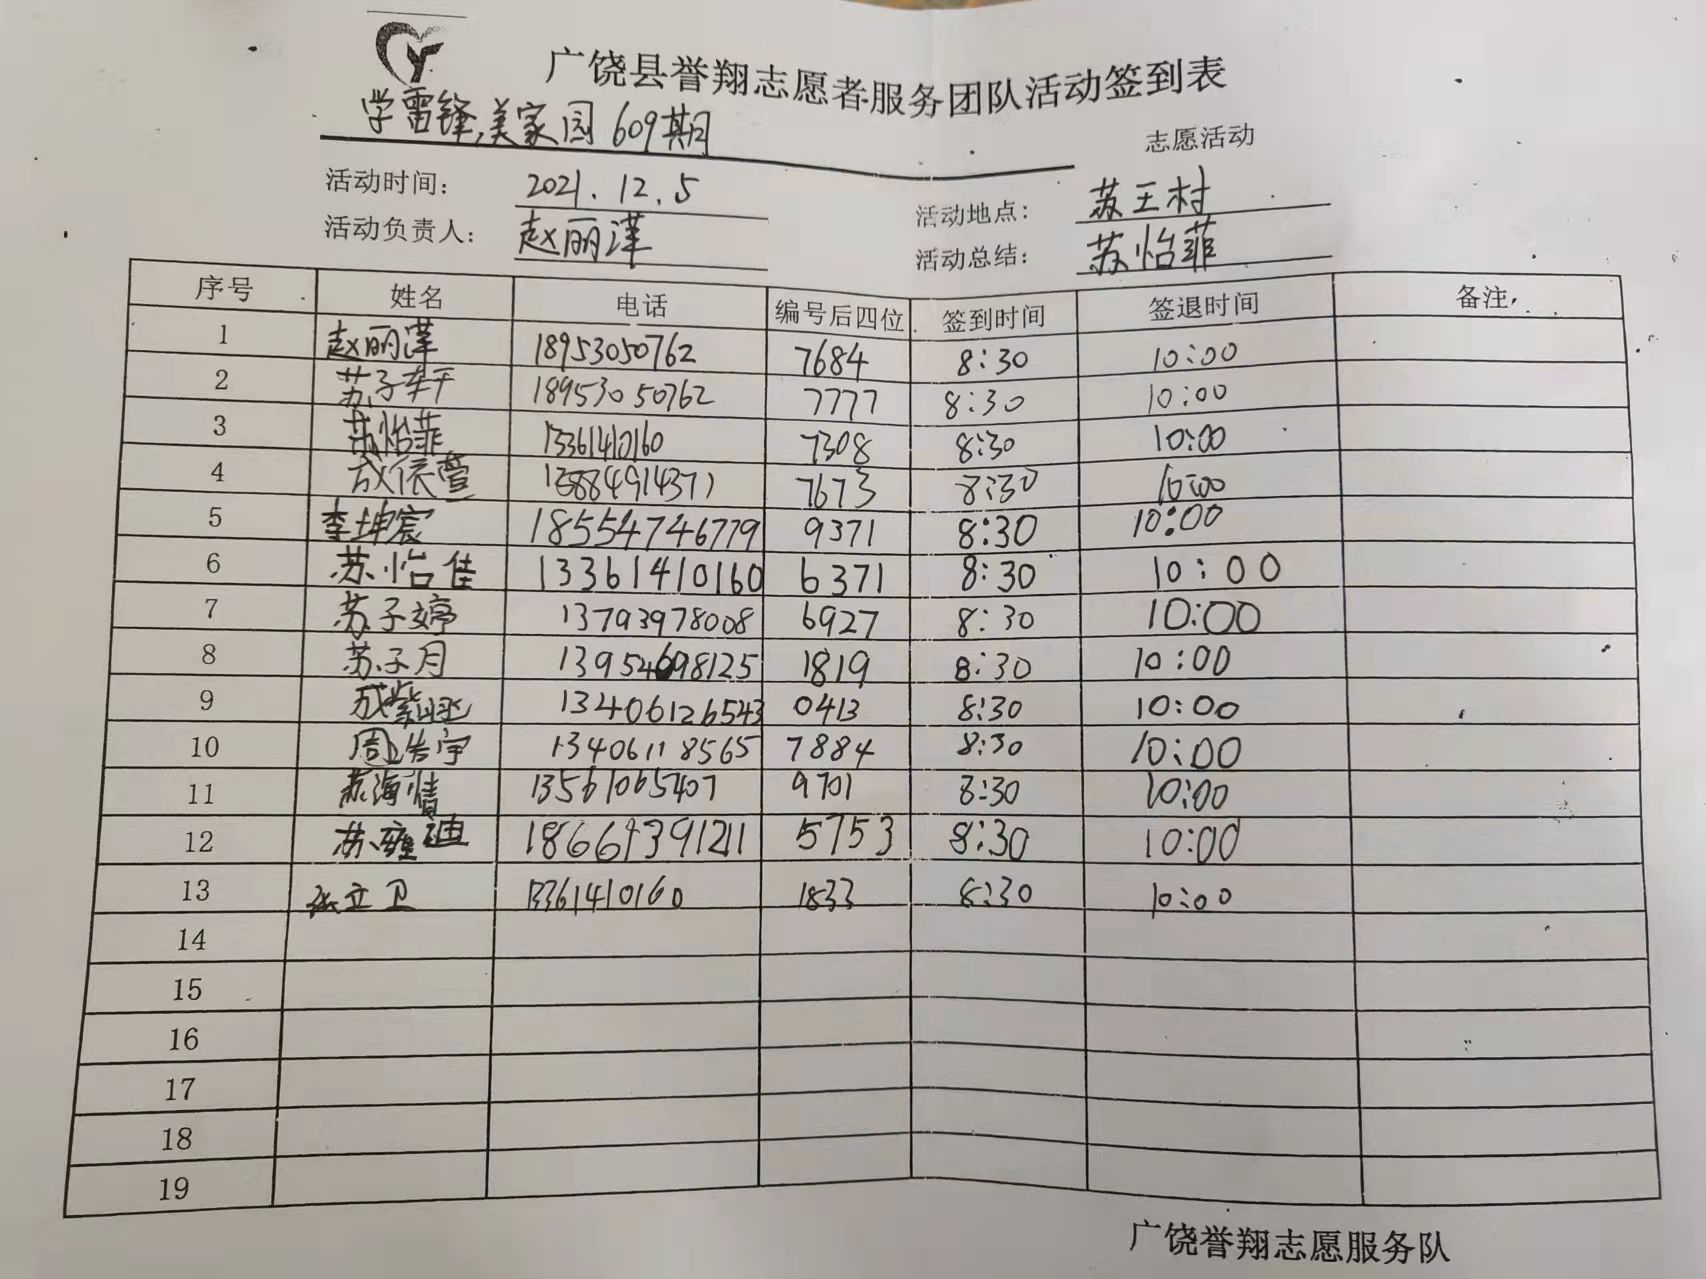 广饶县誉翔志愿者服务团队活动签到表
学雷锋,美家园609期
志愿活动
活动时间: 2021.12.5 活动地点: 苏王村
活动负责人: 赵丽萍 活动总结: 苏怡菲
序号 姓名 电话 编号后四位 签到时间 签退时间 备注
1 赵丽萍 18953050762 7684 8:30 10:00
2 苏子轩 18953050762 7777 8:30 10:00
3 苏怡菲 13361410160 7308 8:30 10:00
4 成依萱 13884914371 7673 8:30 10:00
5 李坤宸 18554746779 9371 8:30 10:00
6 苏怡佳 13361410160 6371 8:30 10:00
7 苏子婷 13793978008 6927 8:30 10:00
8 苏子月 13954698125 1819 8:30 10:00
9 成紫 13406126543 0413 8:30 10:00
10 周浩宇 13406118565 7884 8:30 10:00
11 苏海情 13561065407 9701 8:30 10:00
12 苏雍 5753 8:30 10:00
13 张立卫 13361410160 1833 8:30 10:00
14
15
16
17
18
19
广饶誉翔志愿服务队